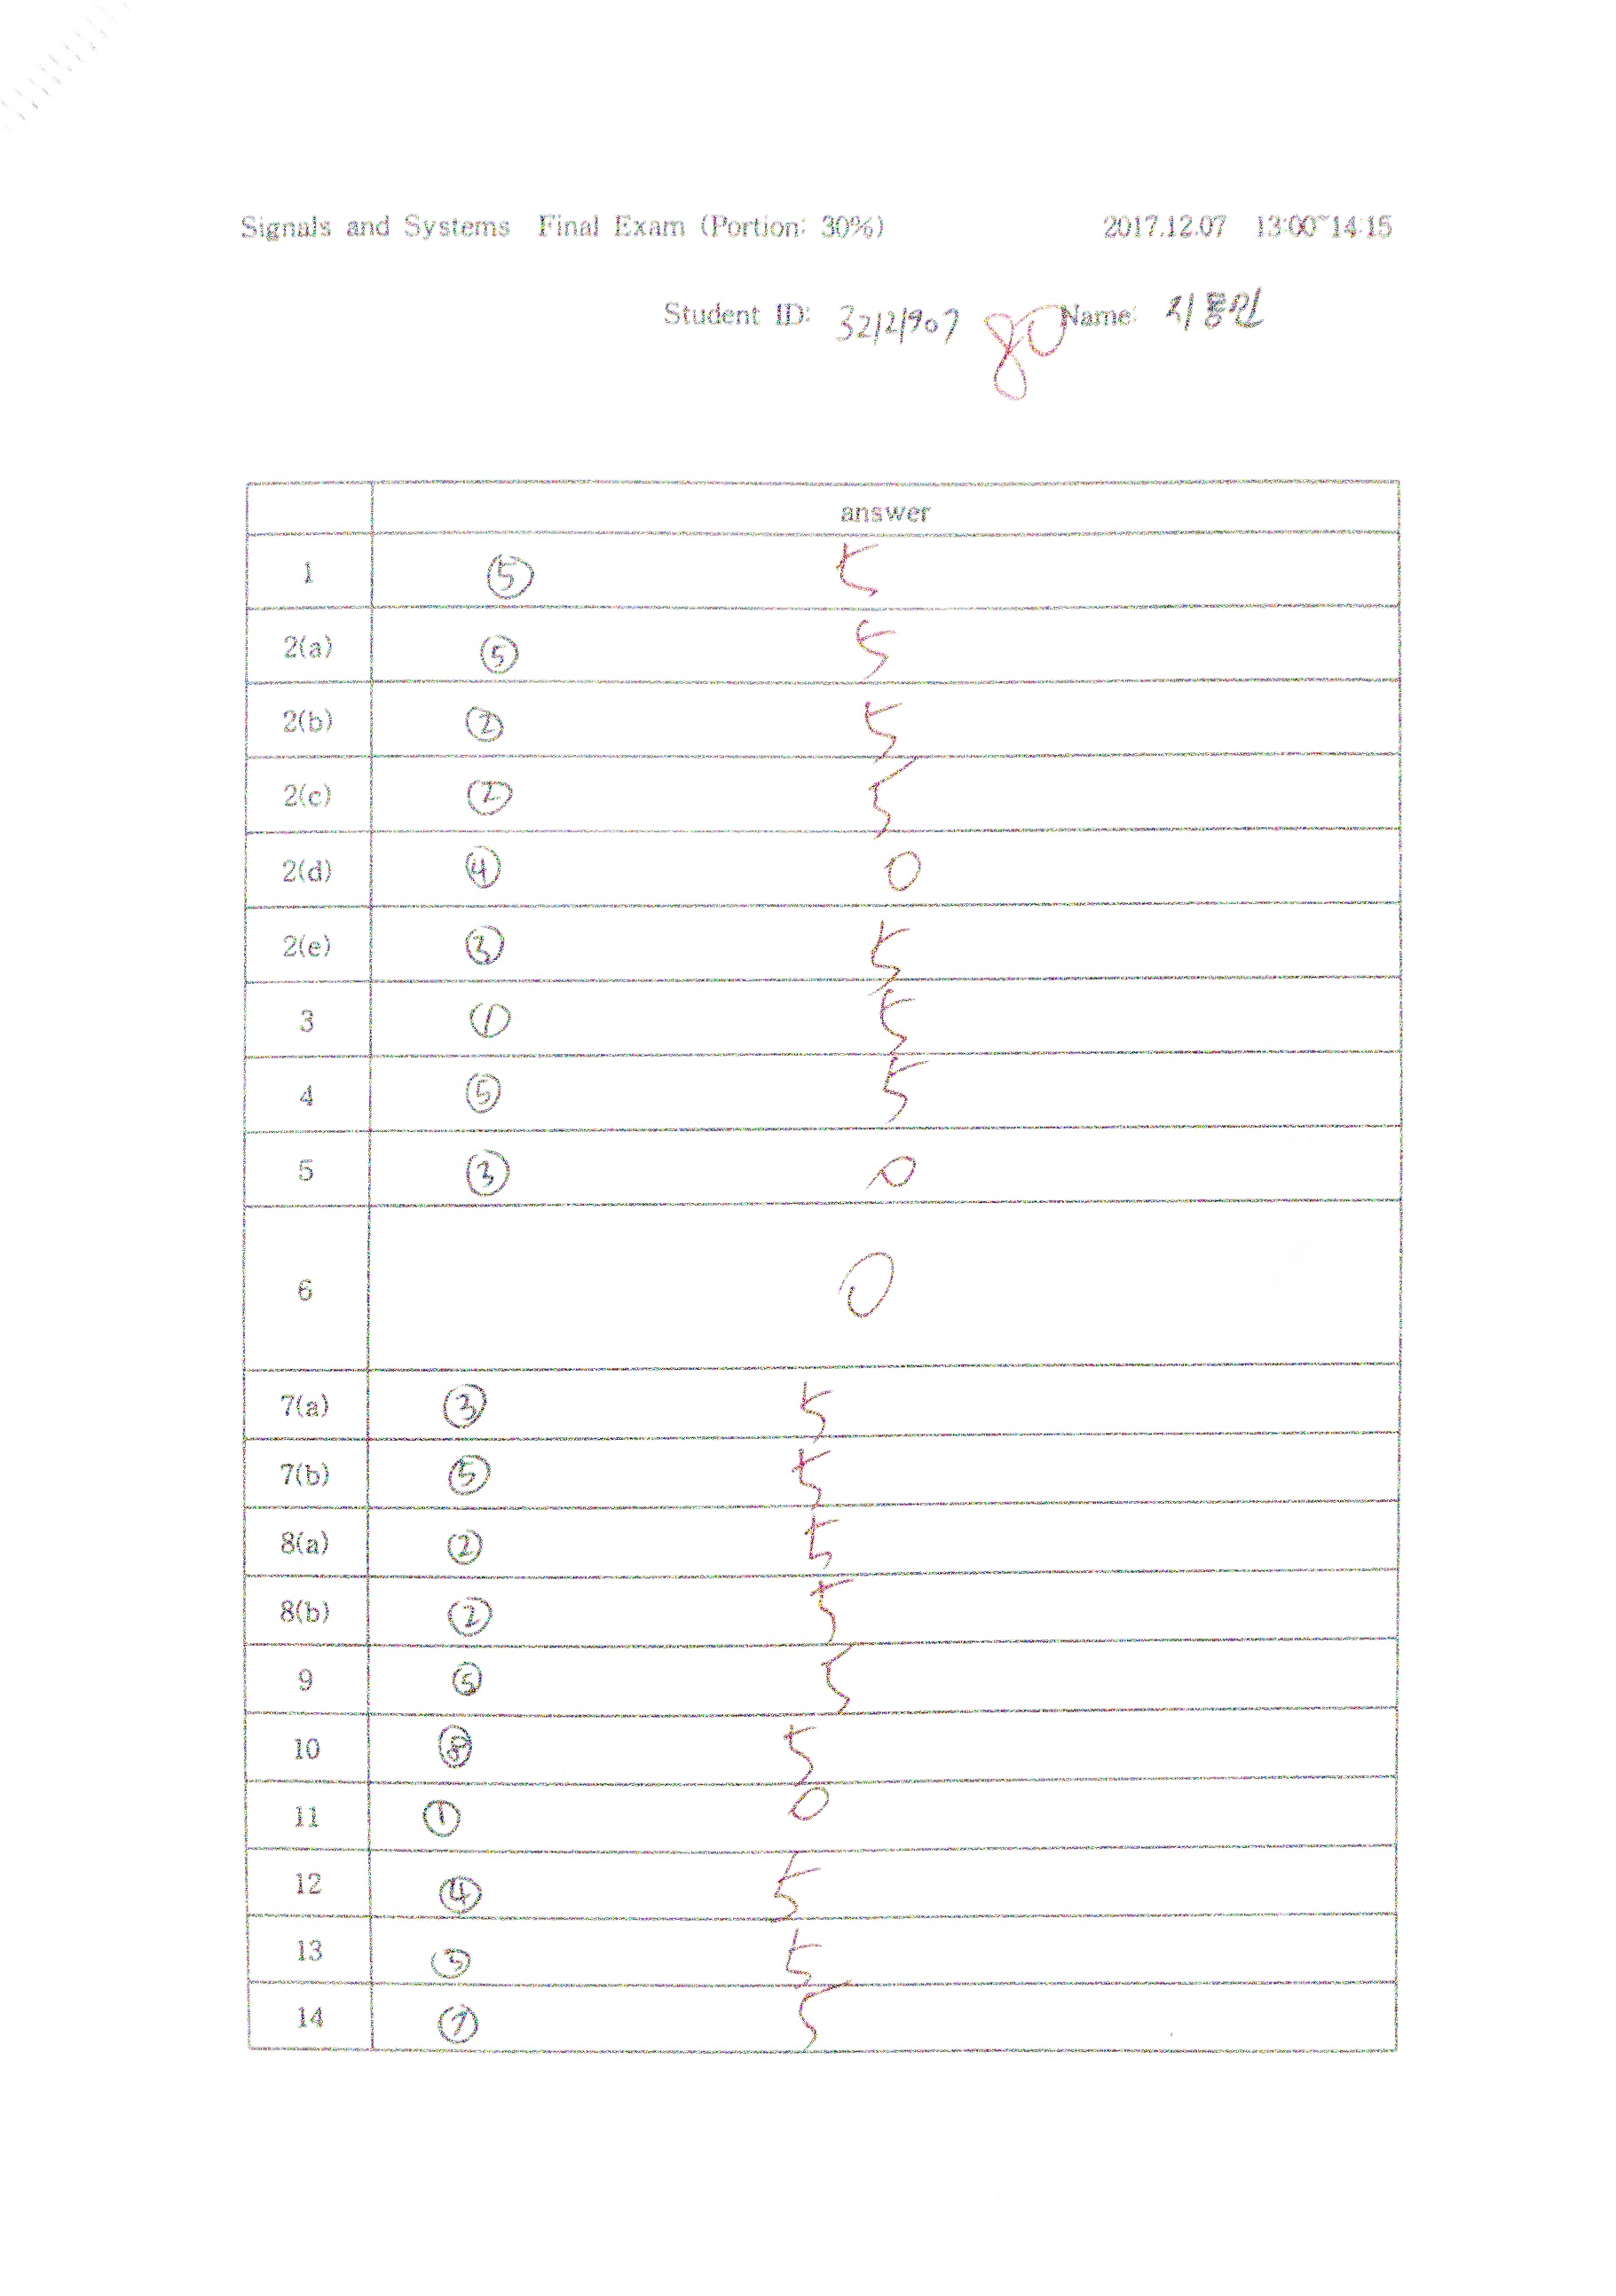 Signals and Systems Final Exam (Portion: 30%) 2017.12.07 13:00~14:15
Student ID: 32121907 80 Name:
answer
1 ⑤ 5
2(a) ⑤ 5
2(b) ② 5
2(c) ② 5
2(d) ④ 0
2(e) ③ 5
3 ① 5
4 ⑤ 5
5 ③ 0
6 0
7(a) ③ 5
7(b) ⑤ 5
8(a) ② 5
8(b) ② 5
9 ⑤ 5
10 ⑧ 5
11 ① 0
12 ④ 5
13 5
14 5